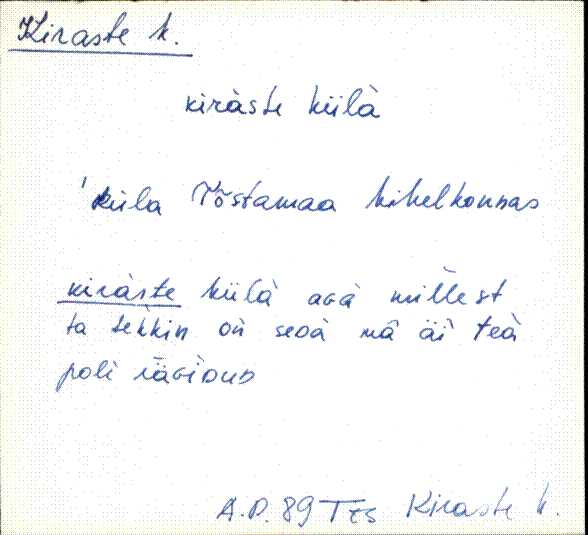 Kiraste k.
kiràste külà
'küla Tõstamaa kihelkonnas
kiràste külà aGà millest
ta tekkin on seDà mà äi teà
poli rääGiDuD
A.P. 89 Tõs Kiraste k.